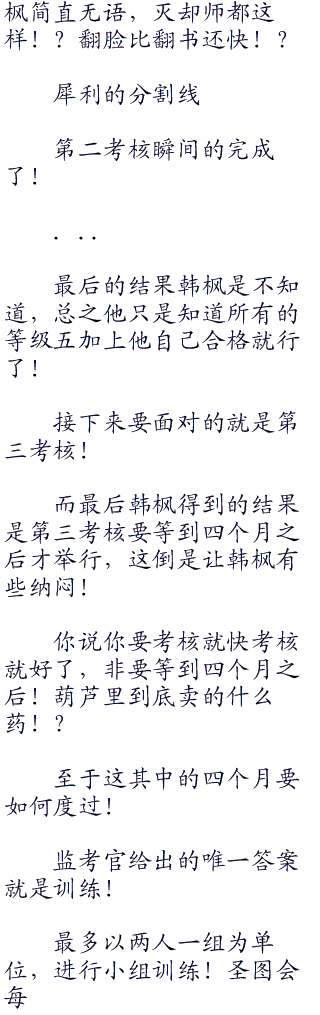 枫简直无语，灭却师都这
样！？翻脸比翻书还快！？
犀利的分割线
第二考核瞬间的完成
了！
．．．
最后的结果韩枫是不知
道，总之他只是知道所有的
等级五加上他自己合格就行
了！
接下来要面对的就是第
三考核！
而最后韩枫得到的结果
是第三考核要等到四个月之
后才举行，这倒是让韩枫有
些纳闷！
你说你要考核就快考核
就好了，非要等到四个月之
后！葫芦里到底卖的什么
药！？
至于这其中的四个月要
如何度过！
监考官给出的唯一答案
就是训练！
最多以两人一组为单
位，进行小组训练！圣图会
每